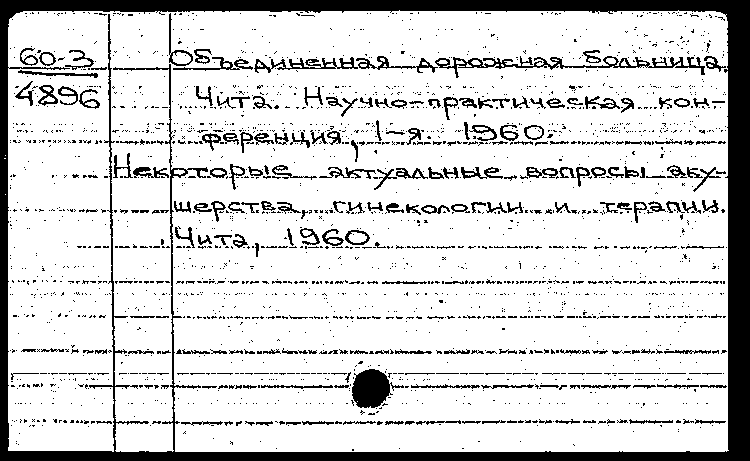 60-3 Объединенная дорожная больница.
4896 Чита. Научно-практическая кон-
ференция, 1-я. 1960.
Некоторые актуальные вопросы аку-
шерства, гинекологии и терапии.
Чита, 1960.